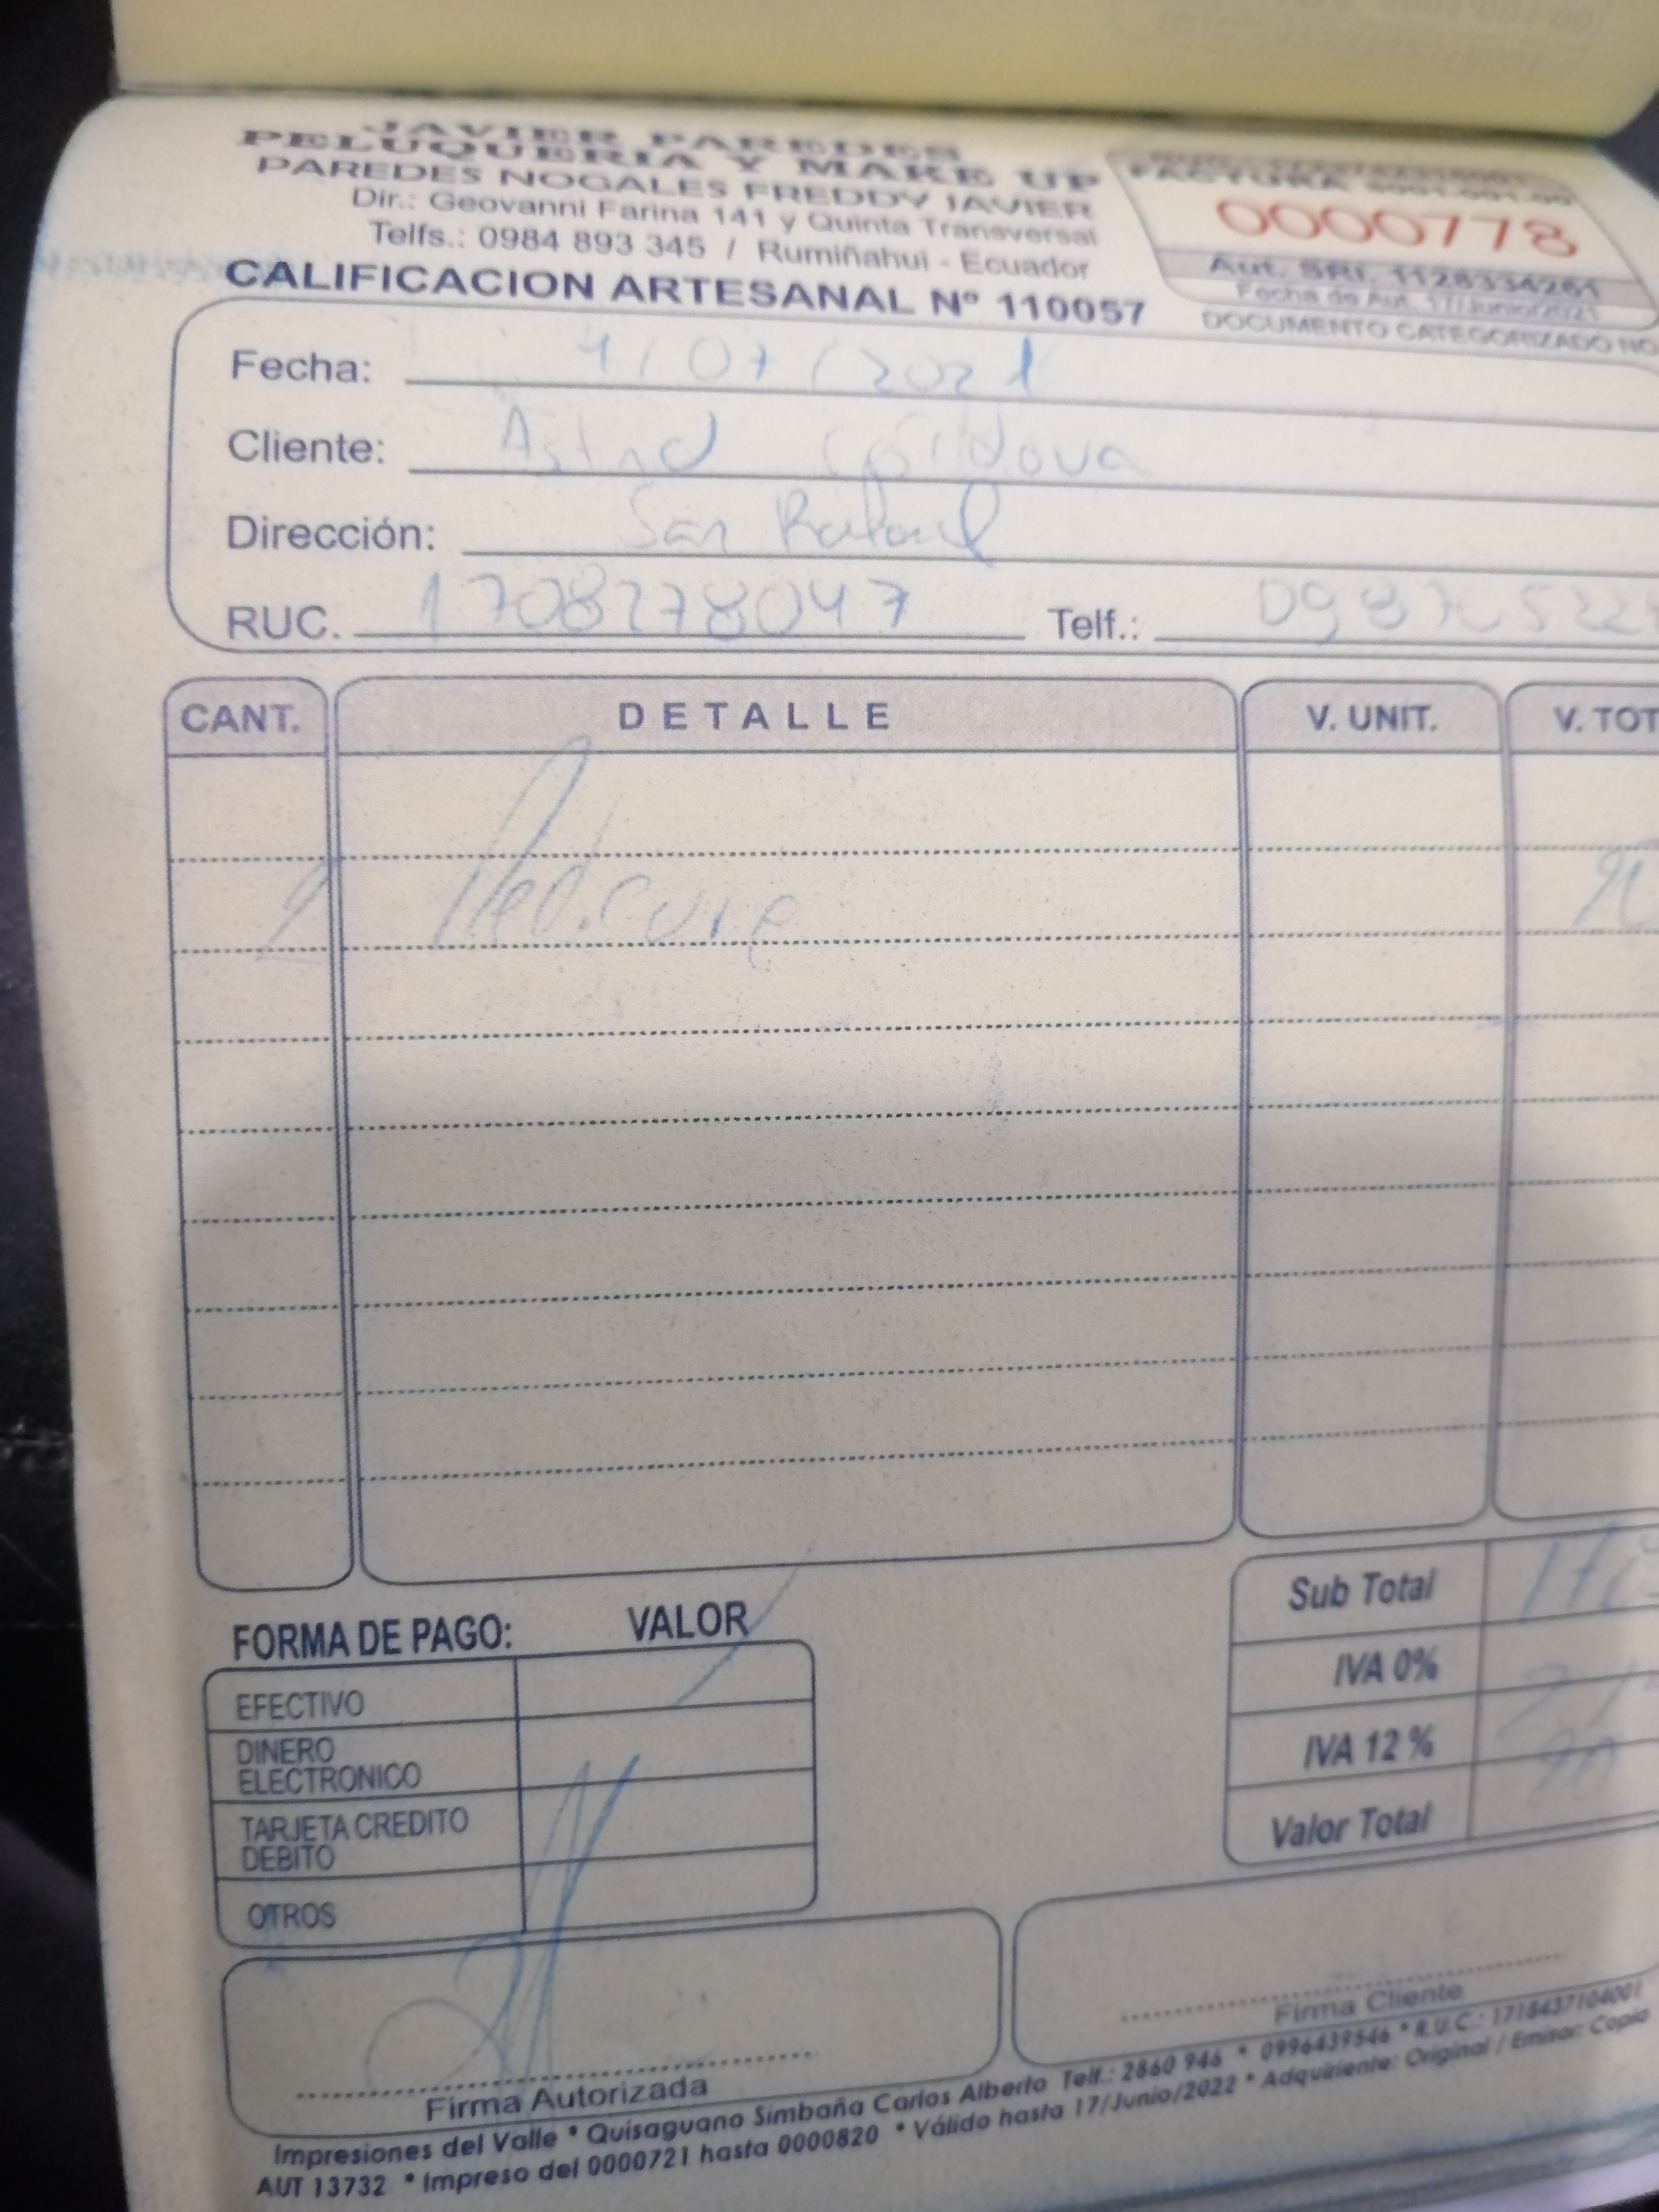 JAVIER PAREDES
PELUQUERIA Y MAKE UP
PAREDES NOGALES FREDDY JAVIER
Dir.: Geovanni Farina 141 y Quinta Transversal
Telfs.: 0984 893 345 / Rumiñahui - Ecuador
CALIFICACION ARTESANAL Nº 110057
FACTURA
0000778
Aut. SRI. 1128334261
Fecha de Aut. 17/Junio/2021
DOCUMENTO CATEGORIZADO NO
Fecha: /07/2021
Cliente: Astrid Córdova
Dirección: San Rafael
RUC. 1708278047 Telf.:
CANT. DETALLE V. UNIT. V. TOT
Pedicure
Sub Total
IVA 0%
IVA 12 %
Valor Total
FORMA DE PAGO: VALOR
EFECTIVO
DINERO
ELECTRONICO
TARJETA CREDITO
DEBITO
OTROS
Firma Autorizada
Firma Cliente
Impresiones del Valle * Quisaguano Simbaña Carlos Alberto Telf.: 2860 946 * 0996439546 * R.U.C.: 1718437104001
AUT 13732 * Impreso del 0000721 hasta 0000820 * Válido hasta 17/Junio/2022 * Adquiriente: Original / Emisor: Copia